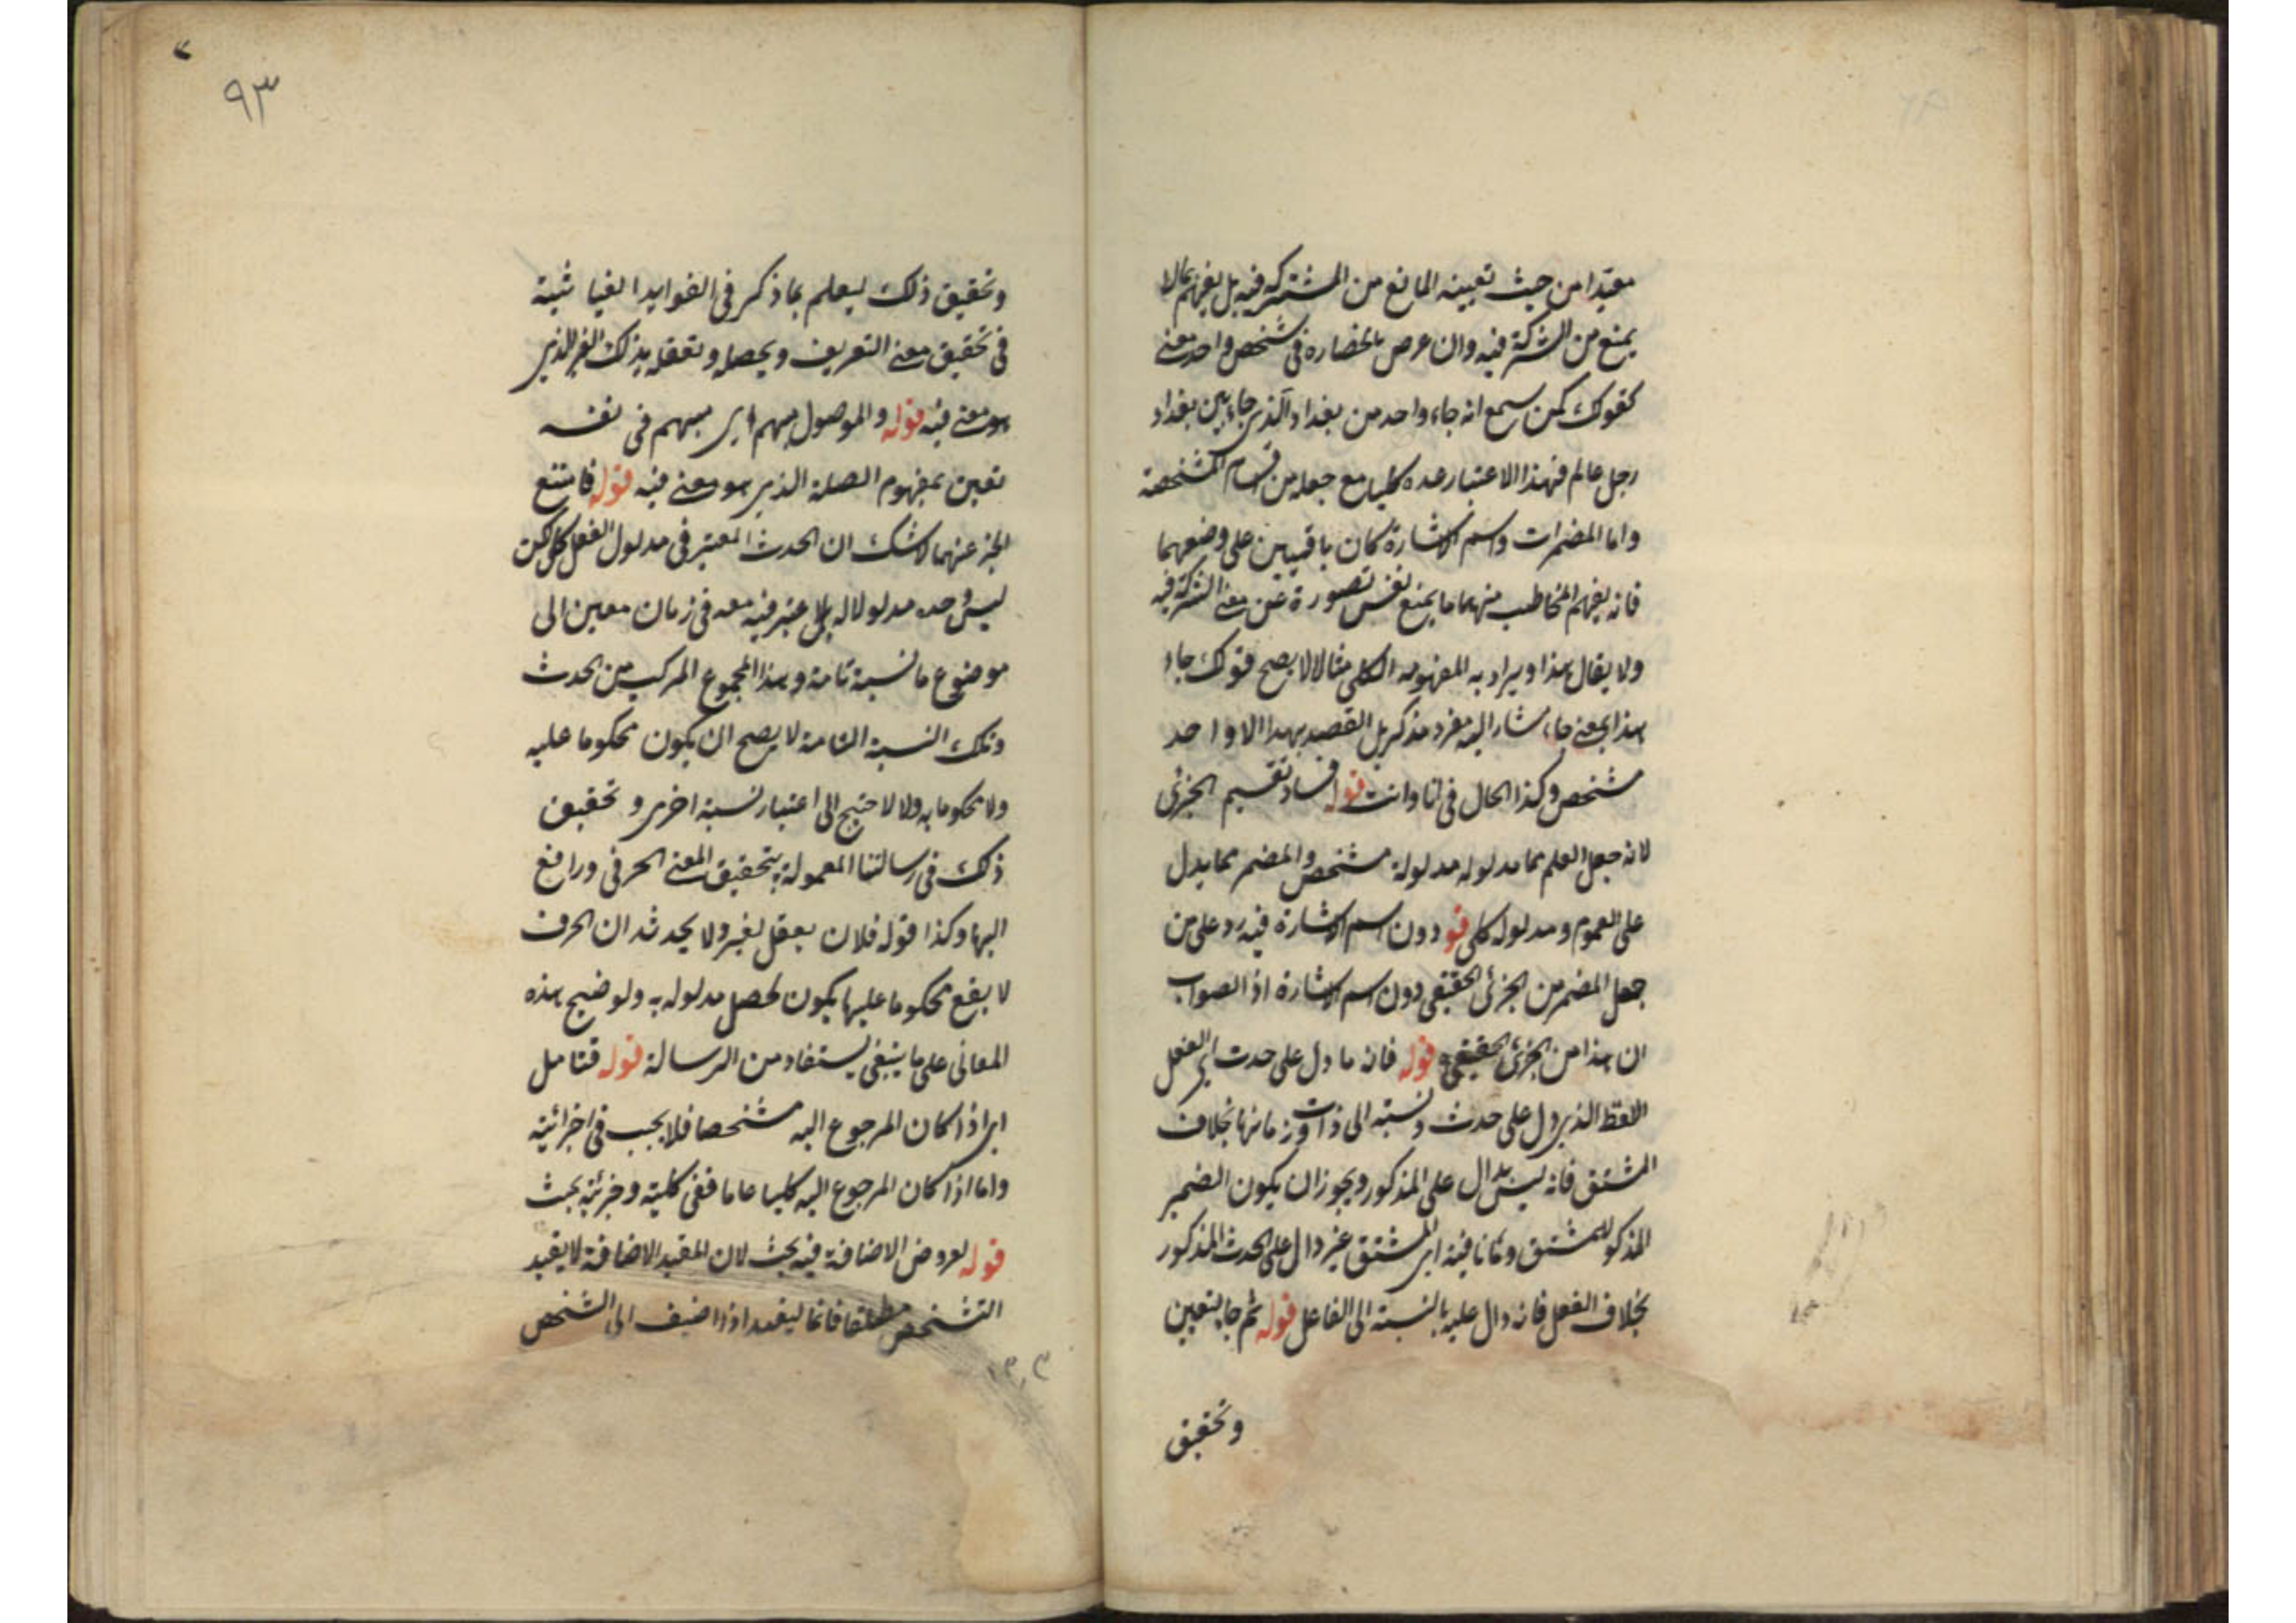 مقيدا من حيث تعيينه المانع من المشتركة فيه بل يفهم مالا
يمنع من الشركة فيه وان عرض انحصاره في شخص واحد معنى
كقولك لمن سمع انه جاء واحد من بغداد الذي جاء من بغداد
رجل عالم فهذا الاعتبار عده كليا مع جعله من اقسام المشخصة
واما المضمرات واسم الاشارة كان باقيين على وضعهما
فانه يفهم المخاطب منهما ما يمنع نفس تصوره عن معنى الشركة فيه
ولا يقال هذا ويراد به المفهوم الكلي مثلا لا يصح قولك جاء
هذا بمعنى جاء مشار اليه مفرد مذكر بل القصد بهذا الا واحد
مشخص وكذا الحال في انا وانت قوله فساد تقسيم الجزئي
لانه جعل العلم مما مدلوله مدلولة مشخص والمضمر مما يدل
على العموم ومدلوله كلي قو دون اسم الاشارة فيه رد على من
جعل المضمر من الجزئي الحقيقي دون اسم الاشارة اذ الصواب
ان هذا من الجزئي الحقيقي قوله فانه ما دل على حدث اي الفعل
اللفظ الذي دل على حدث ونسبته الى ذات وزمانها بخلاف
المشتق فانه ليس بدال على المذكور ويجوز ان يكون الضمير
المذكور للمشتق وثانا فيه اي المشتق غير دال على الحدث المذكور
بخلاف الفعل فانه دال عليه بالنسبة الى الفاعل قوله ثم جا لتعيين
وتحقيق
٩٣
وتحقيق ذلك يعلم بما ذكر في الفوايد الغياثية
في تحقيق معنى التعريف وتحصله وتعقله بذلك الغير الذي
هو معنى فيه قوله والموصول مبهم اي مبهم في نفسه
تعين بمفهوم الصلة الذي هو معنى فيه قوله فامتنع
الخبر عنهما لا شك ان الحدث المعتبر في مدلول الفعل كلي لكن
ليس وحده مدلولا له بل اعتبر فيه معه في زمان معين الى
موضوع ما نسبة تامة وهذا المجموع المركب من الحدث
وتلك النسبة التامة لا يصح ان يكون محكوما عليه
ولا محكوما به والا لاحتيج الى اعتبار نسبة اخرى وتحقيق
ذلك في رسالتنا المعمولة بتحقيق المعنى الحرفي ورافع
اليها وكذا قوله فلان يعقل لغير ولا يحدثه ان الحرف
لا يقع محكوما عليها يكون لحصل مدلوله به ولوضيح هذه
المعاني على ما ينبغي يستفاد من الرسالة قوله فتامل
اي اذا كان المرجوع اليه مشخصا فلا يجب في اجزائيته
واما اذا كان المرجوع اليه كليا عاما ففي كليته وجزئيته بحث
قوله لعروض الاضافة فيه بحث لان المقيد الاضافة لا يفيد
التشخص مطلقا فانما ليفيد اذا اضيف الى الشخص